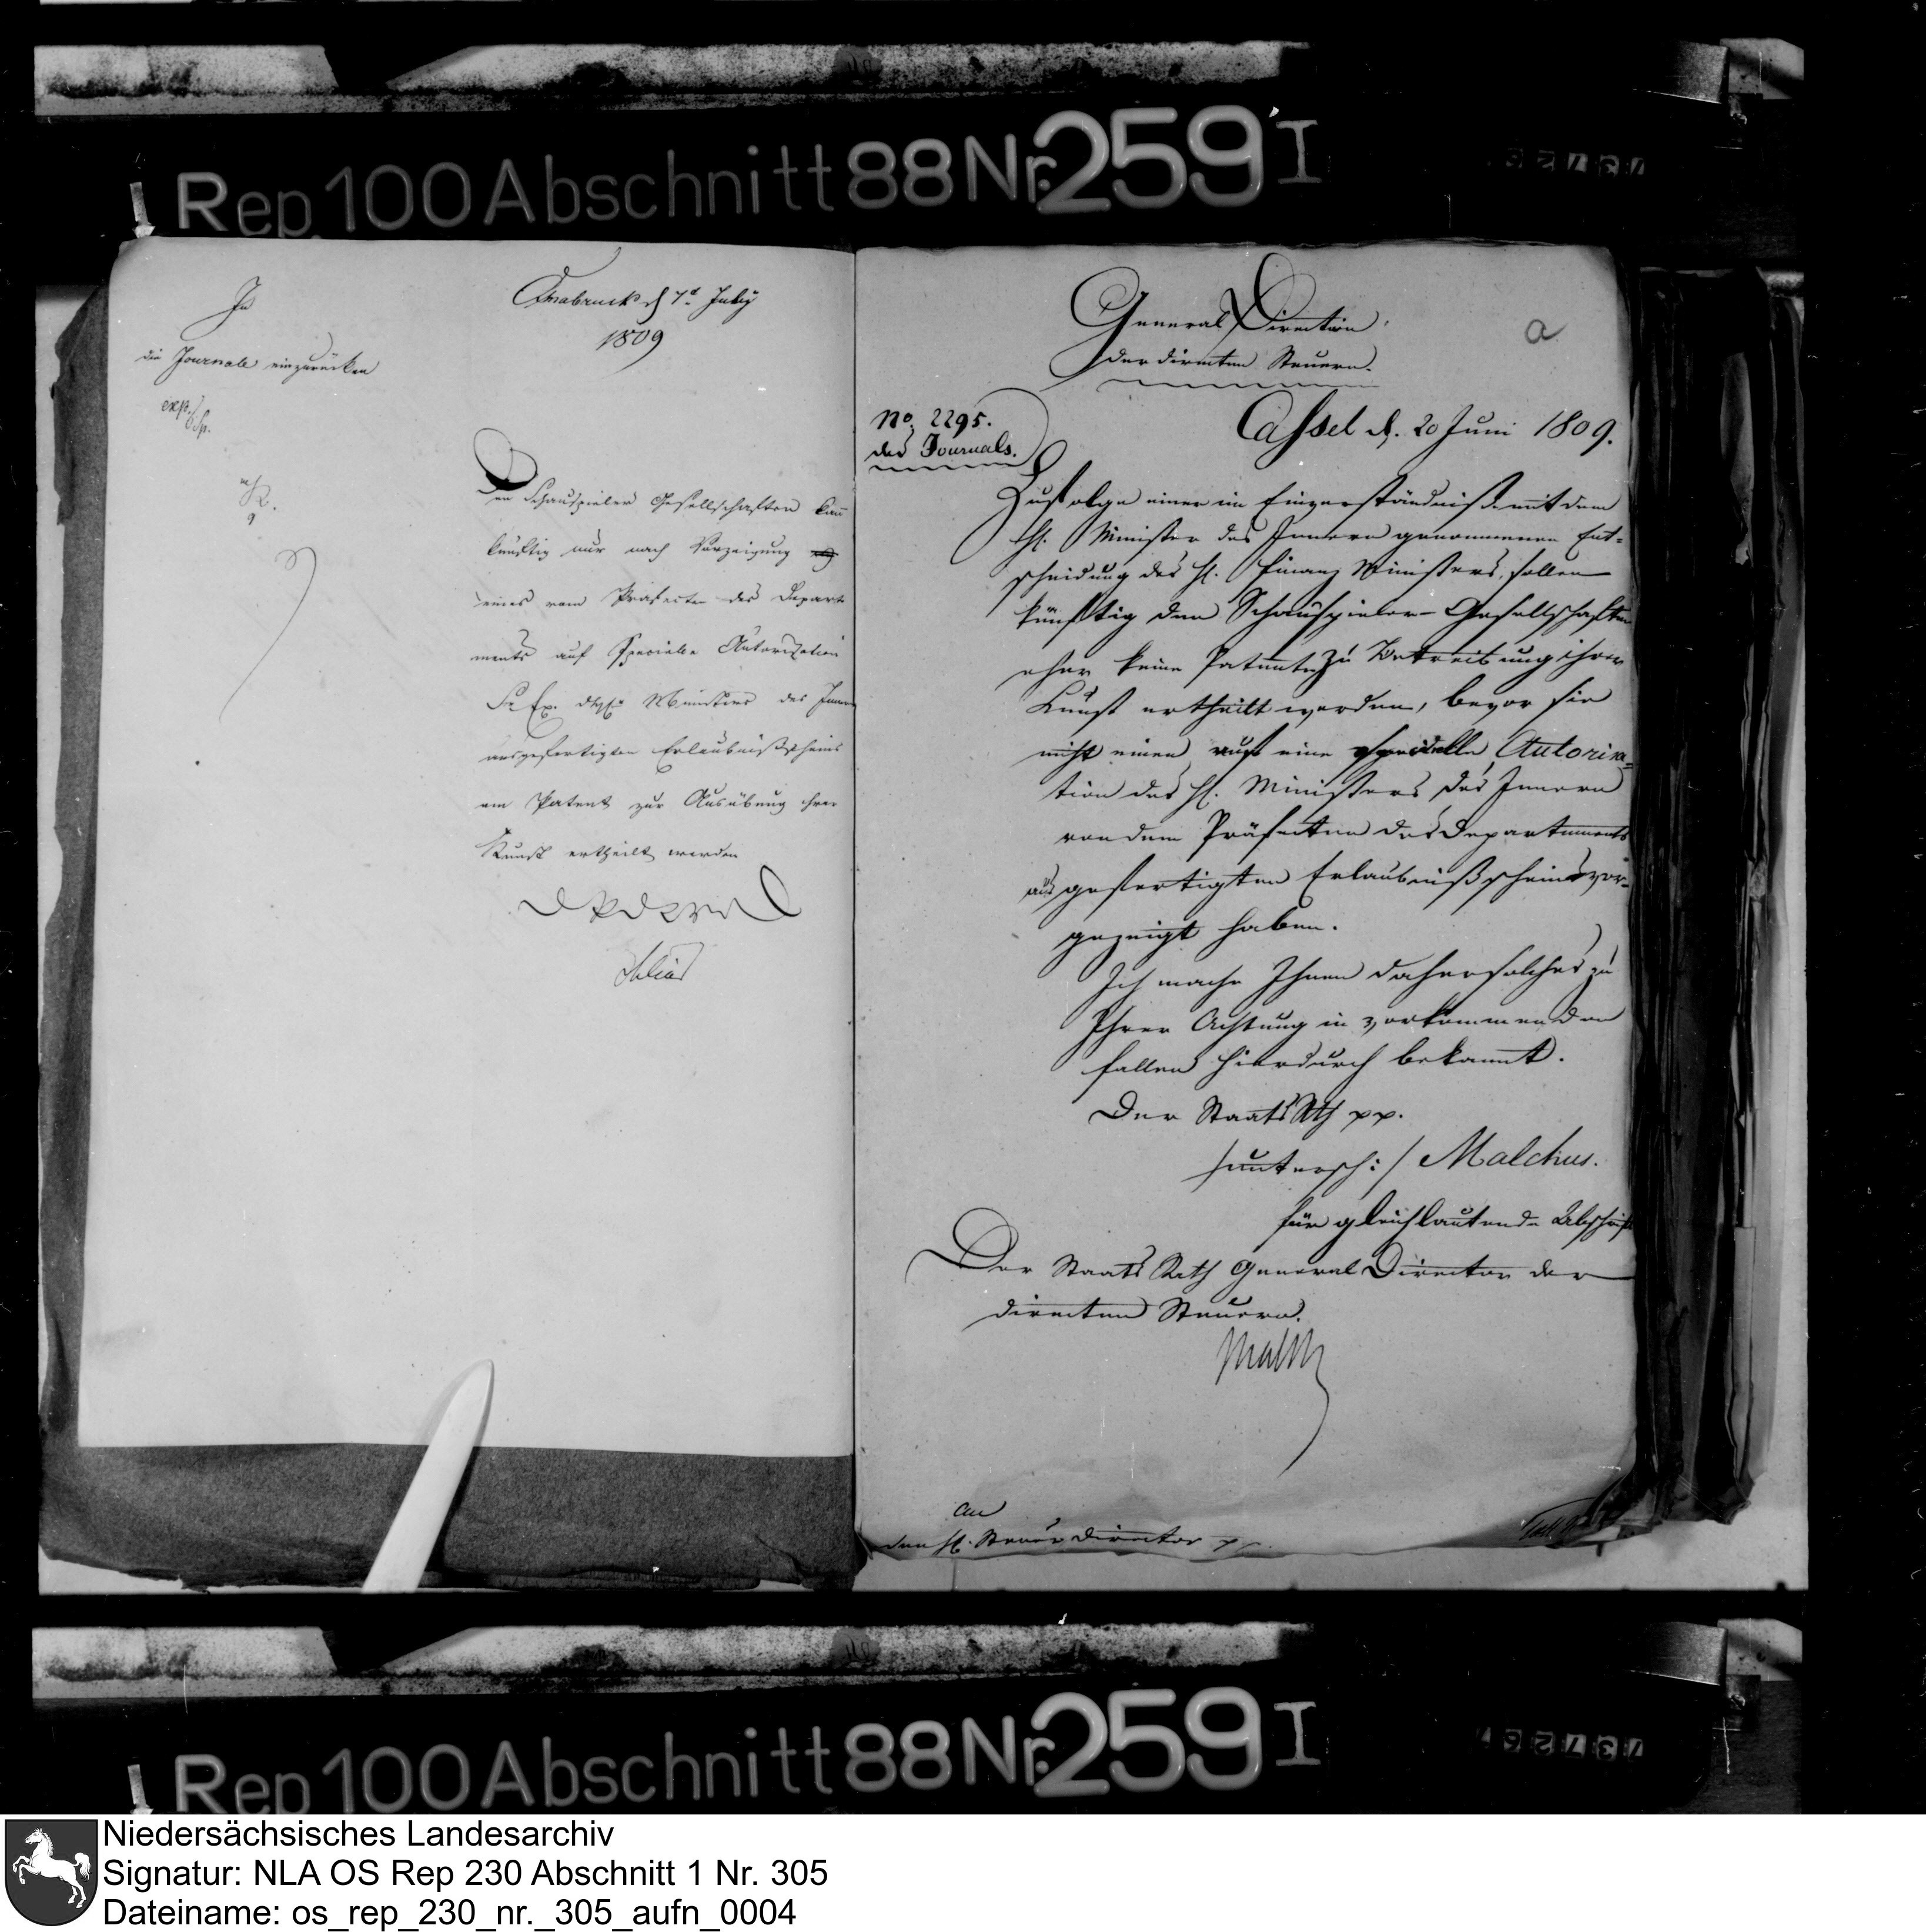 Rep. 100 Abschnitt 88 Nr. 259 I
In
die Journale einzurücken
exp.
Osnabruck d 7t July
1809
Den Schauspieler Gesellschaften kan
künftig nur nach Vorzeigung
eines vom Präfecten des Departe
ments auf specielle Autorisation
Sr Ex. des Ministers des Innern
ausgefertigten Erlaubnißscheins
ein Patent zur Ausübung ihrer
Kunst ertheilt werden
General Direction
der directen Steuern.
a
No. 2295.
des Journals.
Cassel d. 20 Juni 1809.
Zufolge einer im Einverständniße mit dem
H. Minister des Innern genommenen Ent-
scheidung des H. Finanz Ministers, sollen
künftig den Schauspieler-Gesellschaften
eher keine Patente zu Betreibung ihrer
Kunst ertheilt werden, bevor sie
nicht einen auf eine specielle Autorisa-
tion des H. Ministers des Innern
von dem Präfecten des Departements
ausgefertigten Erlaubnißschein vor-
gezeigt haben.
Ich mache Ihnen daher solches zu
Ihrer Achtung in vorkommenden
Fällen hierdurch bekannt.
Der Staats Rth pp.
/:untersch:/ Malchus.
für gleichlautende Abschrift
Der Staats Rath General Director der
directen Steuern.
Malchus
An
den H. Steuer Director pp.
Rep 100 Abschnitt 88 Nr. 259 I
Niedersächsisches Landesarchiv
Signatur: NLA OS Rep 230 Abschnitt 1 Nr. 305
Dateiname: os_rep_230_nr._305_aufn_0004